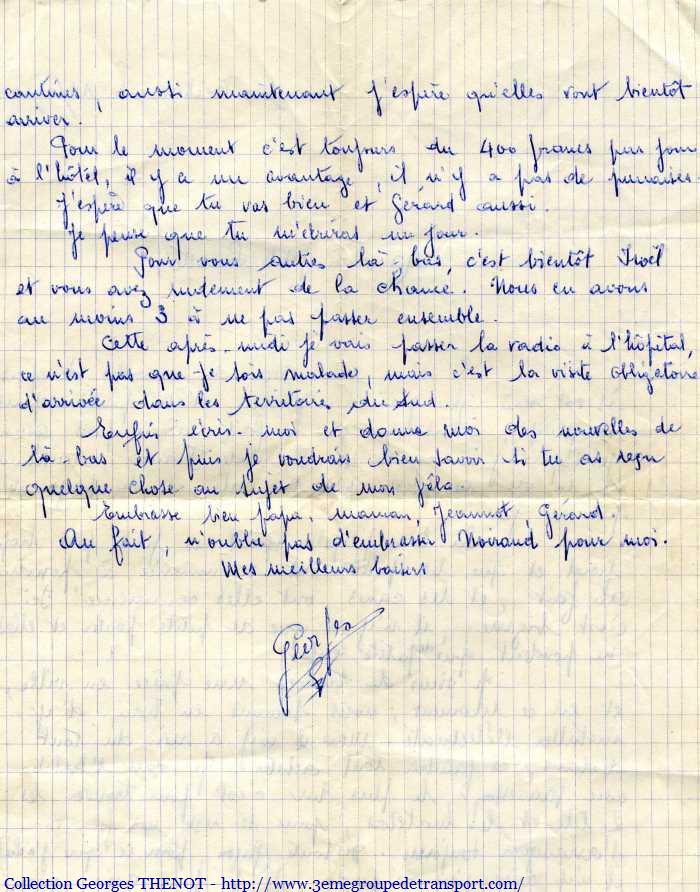 cantines, aussi maintenant j'espère qu'elles vont bientôt
arriver.
Pour le moment c'est toujours du 400 francs par jour
à l'hôtel, il y a un avantage, il n'y a pas de punaises.
J'espère que tu vas bien et Gérard aussi.
Je pense que tu m'écriras un jour.
Pour vous autres là-bas, c'est bientôt Noël
et vous avez rudement de la chance. Nous en avons
au moins 3 à ne pas passer ensemble.
Cette après-midi je vais passer la radio à l'hôpital,
ce n'est pas que je sois malade, mais c'est la visite obligatoire
d'arrivée dans les territoires du Sud.
Enfin écris-moi et donne moi des nouvelles de
là-bas et puis je voudrais bien savoir si tu as reçu
quelque chose au sujet de mon vélo.
Embrasse bien papa, maman, Jeannot, Gérard.
Au fait, n'oublie pas d'embrasser Noiraud pour moi.
Mes meilleurs baisers
Georges
Collection Georges THENOT - http://www.3emegroupedetransport.com/